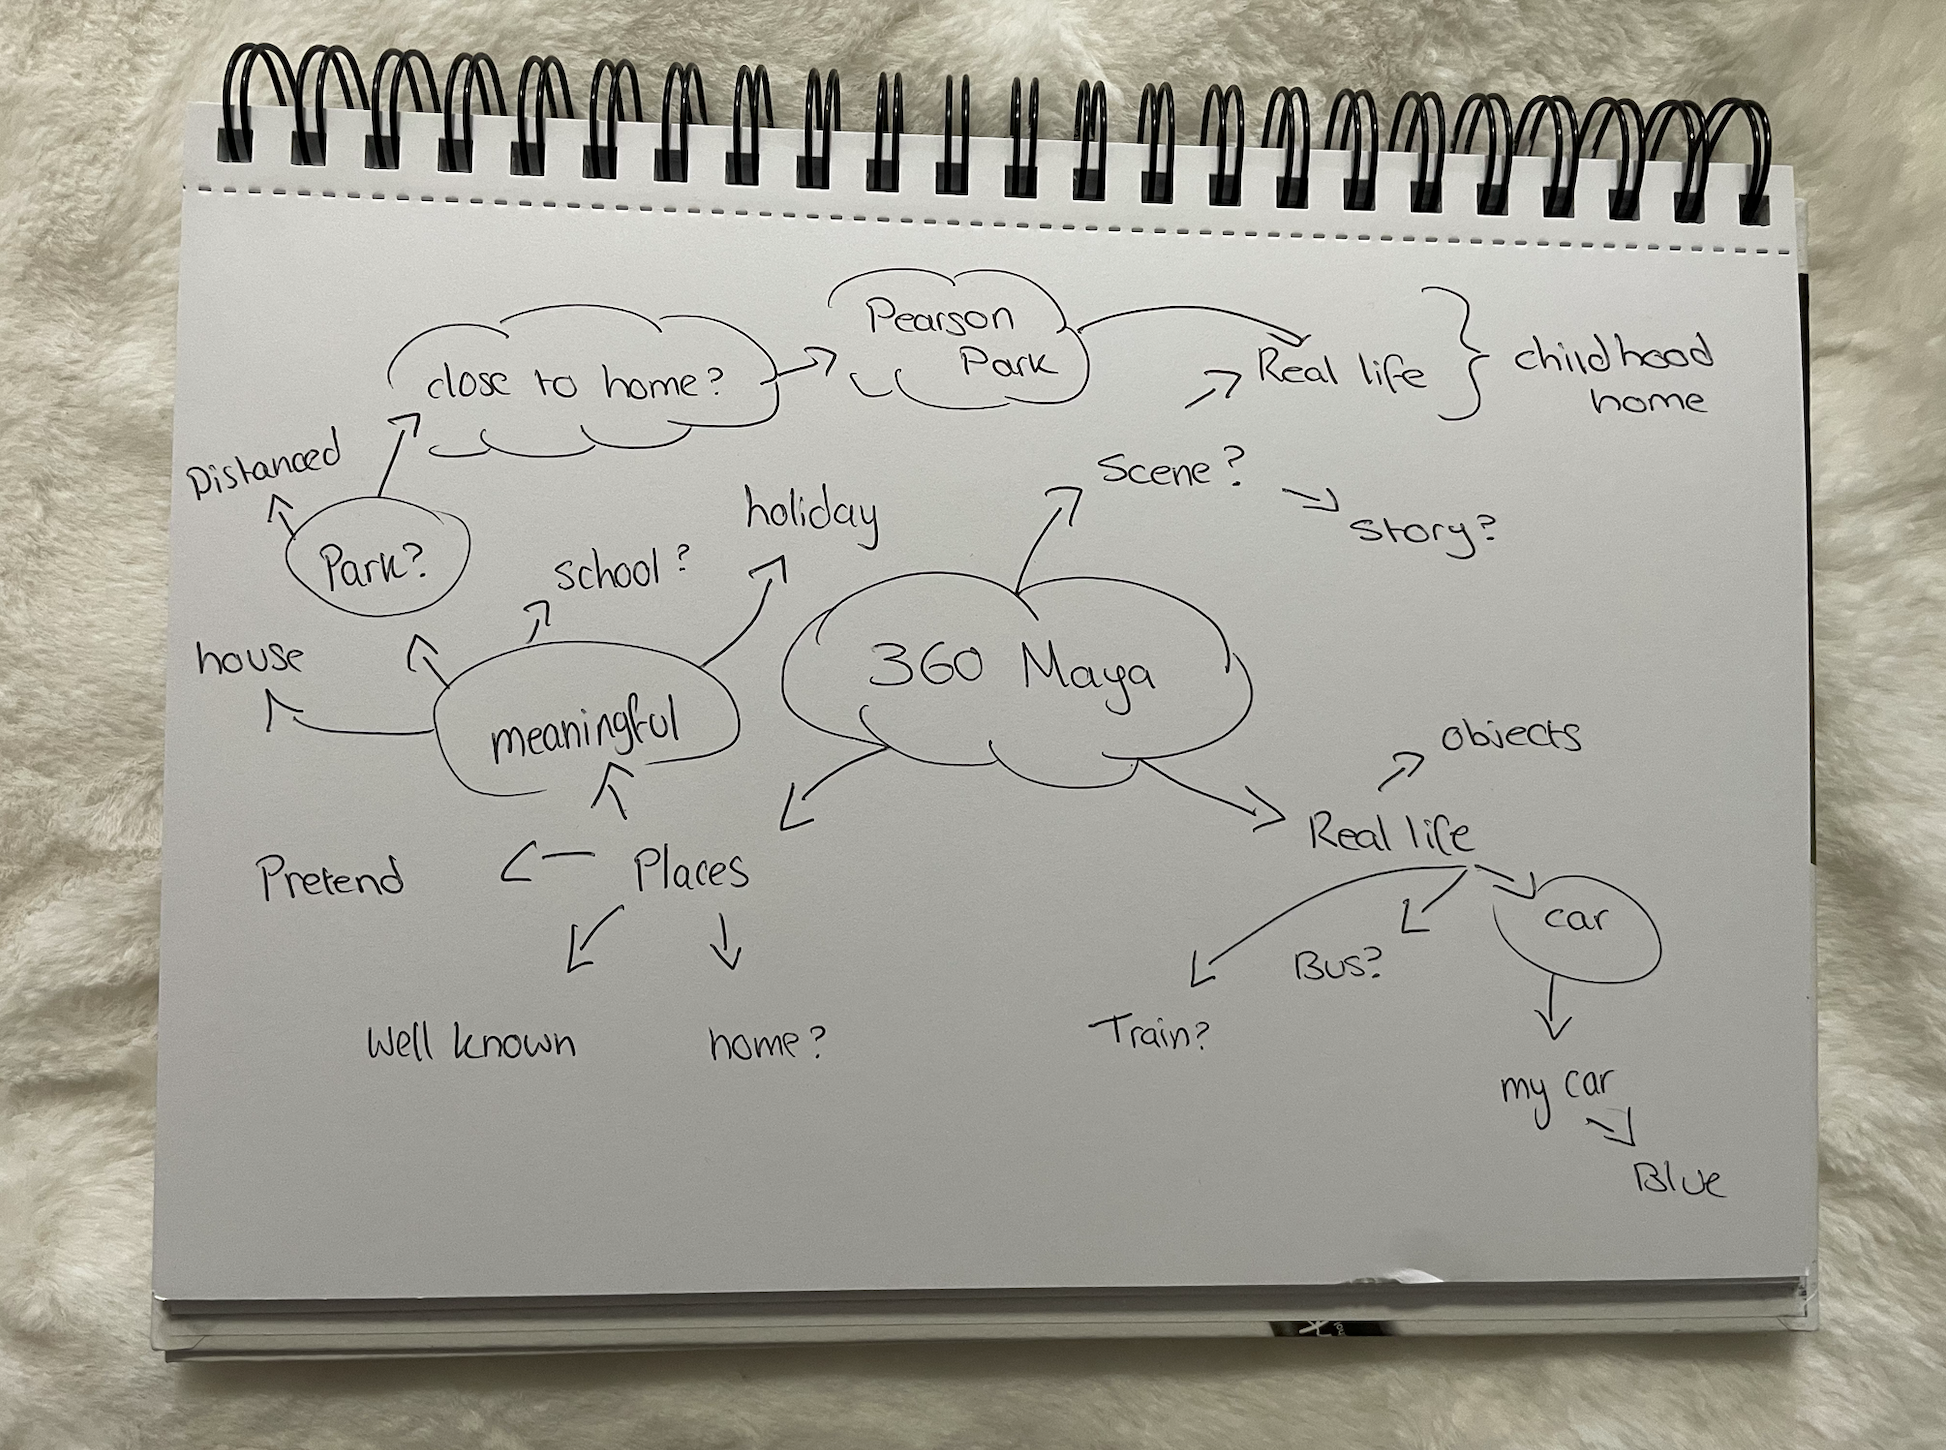 Pearson
Park
close to home?
Real life
childhood
home
Distanced
Scene?
holiday
Story?
Park?
school?
house
360 Maya
meaningful
objects
Real life
Places
Pretend
car
Bus?
Well known
home?
Train?
my car
Blue